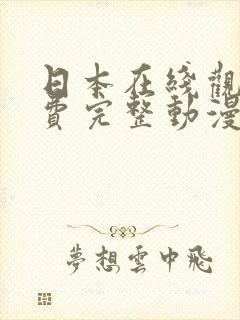 日本在綫觀
費完整動漫
夢想雲中飛